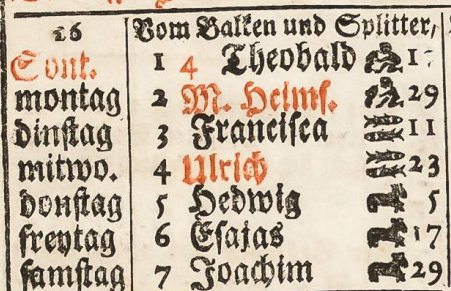 26 Vom Balken und Splitter,
Sont. 1 4 Theobald
montag 2 M. Heims. 29
dinstag 3 Francisca 11
mitwo. 4 Ulrich 23
donstag 5 Hedwig 5
freytag 6 Esajas 17
samstag 7 Joachim 29